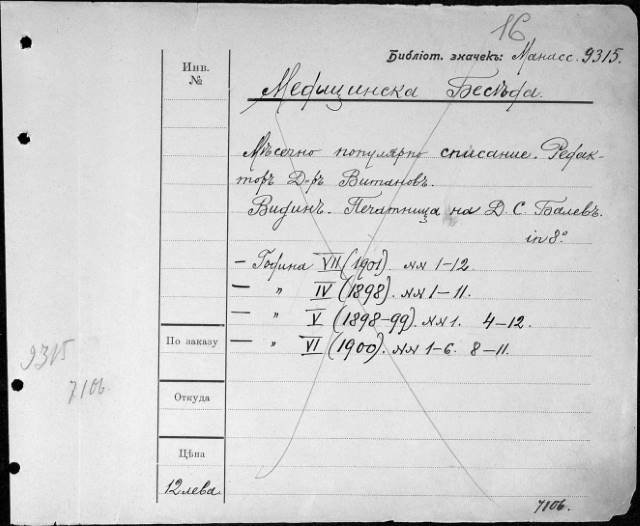 16
Библіот. значекъ: Манасс. 9315.
Инв.
№
Медицинска Бесѣда.
Мѣсечно популярно списание. Редак-
торъ Д-ръ Витановъ.
Видинъ. Печатница на Д. С. Балевъ.
in 8°
— Година VII (1901). №№ 1–12.
— „ IV (1898). №№ 1–11.
— „ V (1898–99). №№ 1. 4–12.
— „ VI (1900). №№ 1–6. 8–11.
По заказу
9315
7106.
Откуда
Цѣна
12 лева
7106.